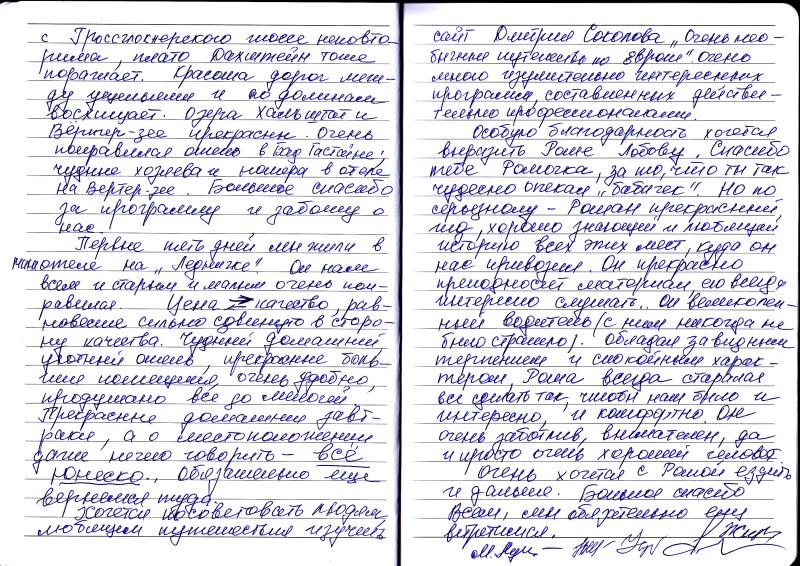 с Гроссглокнерского шоссе неповто-
рима, плато Дахштейн тоже
поражает. Красота дорог меж-
ду ущельями и по долинам
восхищает. Озера Хальштат и
Вёртер-зее прекрасны. Очень
понравился отель в Бад Гастайне,
чудные хозяева и номера в отеле
на Вертер-зее. Большое спасибо
за программу и заботу о
нас.
Первые пять дней мы жили в
миниотеле на "Ледничке". Он нам
всем и старым и малым очень пон-
равился. Цена > качество, рав-
новесие сильно сдвинуто в сторо-
ну качества. Чудный домашний
уютный отель, прекрасные боль-
шие помещения, очень удобно,
продумано всё до мелочей.
Прекрасные домашние завт-
раки, а о местоположении
даже нечего говорить – всё
Юнеско., Обязательно еще
вернемся туда.
Хочется посоветовать людям,
любящим путешествия изучить
сайт Дмитрия Соколова "Очень нео-
бычные путешествия по Европе". Очень
много изумительно интересных
программ, составленных действи-
тельно профессионалами.
Особую благодарность хочется
выразить Роме Лобову. Спасибо
тебе Ромочка, за то, что ты так
чудесно опекал "бабачек". Но по
серьёзному – Роман прекрасный
гид, хорошо знающий и любящий
историю всех этих мест, куда он
нас привозил. Он прекрасно
преподносит материал, его всегда
интересно слушать. Он великолеп-
ный водитель (с ним никогда не
было страшно). Обладая завидным
терпением и спокойным харак-
тером, Рома всегда старался
всё сделать так, чтобы нам было и
интересно, и комфортно. Он
очень заботлив, внимателен, да
и просто очень хороший человек.
Очень хочется с Ромой ездить
и дальше. Большое спасибо
Всем, мы обязательно ещё
встретимся.